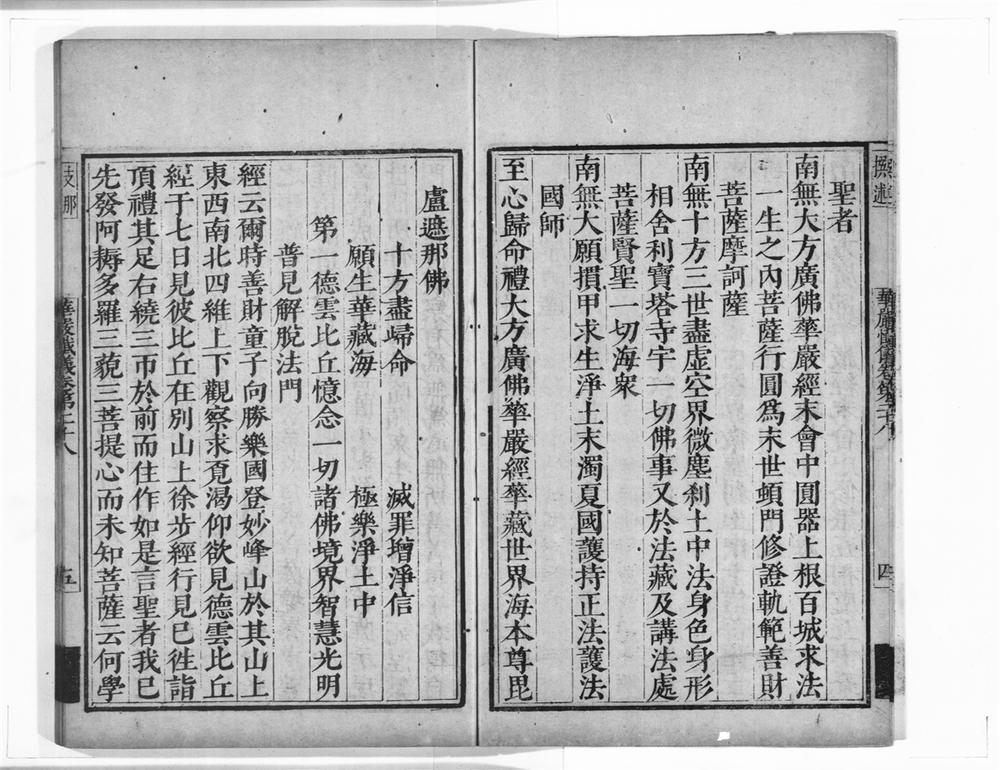 撰述
華嚴懺儀卷第
四
聖者
南無大方廣佛華嚴經末會中圓器上根百城求法
一生之內菩薩行圓爲末世頓門修證軌範善財
菩薩摩訶薩
南無十方三世盡虛空界微塵刹土中法身色身形
相舍利寶塔寺宇一切佛事又於法藏及講法處
菩薩賢聖一切海衆
南無大願損甲求生淨土末濁夏國護持正法護法
國師
至心歸命禮大方廣佛華嚴經華藏世界海本尊毘
盧遮那佛
十方盡歸命 滅罪增淨信
願生華藏海 極樂淨土中
第一德雲比丘憶念一切諸佛境界智慧光明
普見解脫法門
經云爾時善財童子向勝樂國登妙峰山於其山上
東西南北四維上下觀察求覓渴仰欲見德雲比丘
經于七日見彼比丘在別山上徐步經行見已徃詣
頂禮其足右繞三帀於前而住作如是言聖者我已
先發阿耨多羅三藐三菩提心而未知菩薩云何學
支那
華嚴懺儀卷第
五